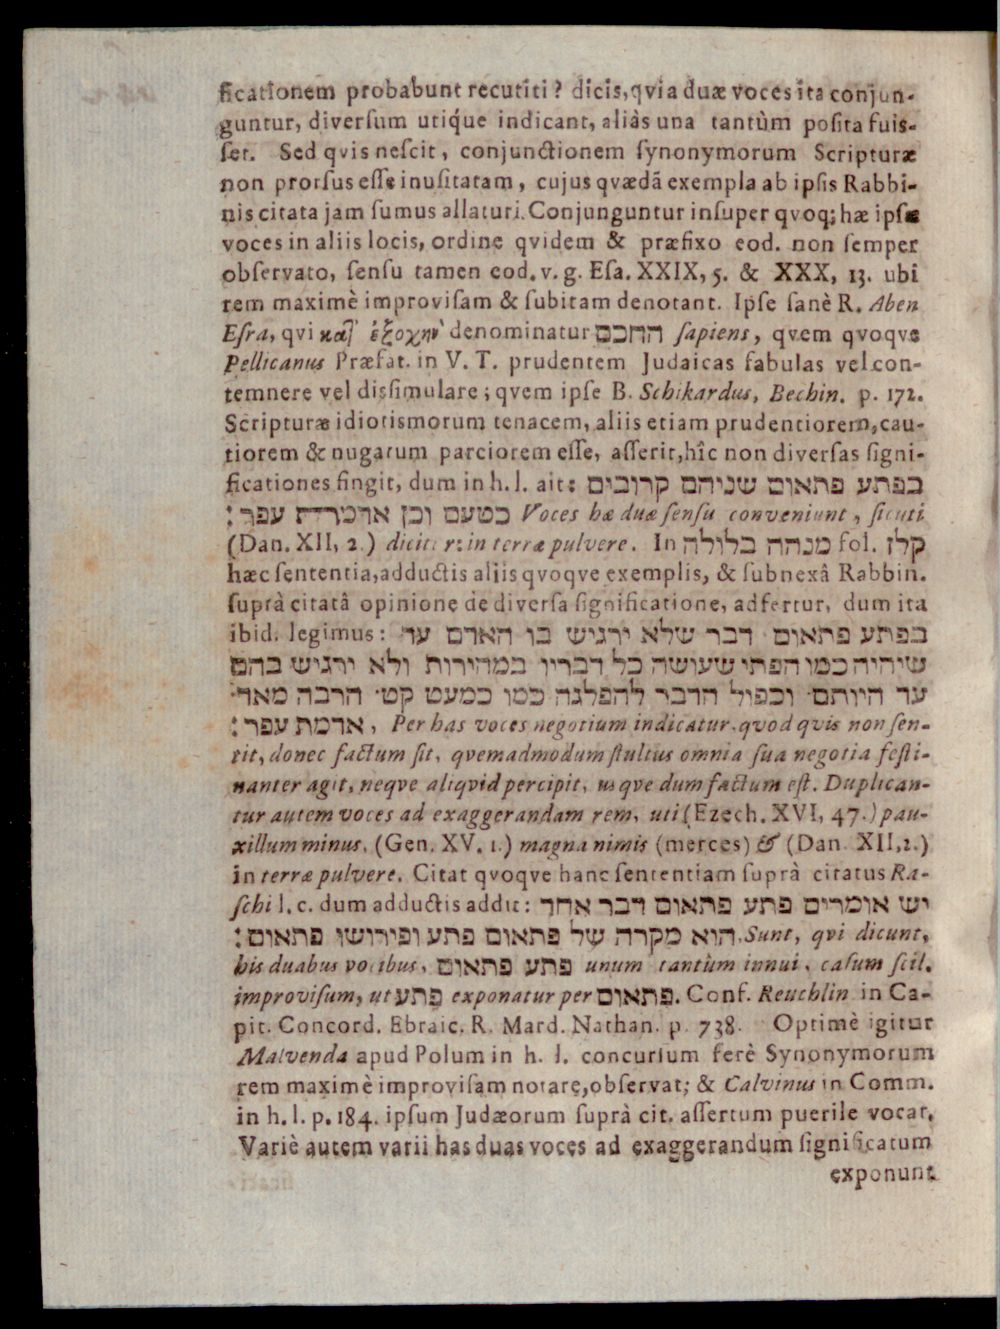 ficationem probabunt recutiti? dicis, qvia duæ voces ita conjun-
guntur, diversum utiq́ue indicant, aliàs una tantùm posita fuis-
set. Sed qvis nescit, conjunctionem synonymorum Scripturæ
non prorsus esse inusitatam, cujus qvædã exempla ab ipsis Rabbi-
nis citata jam sumus allaturi. Conjunguntur insuper qvoq; hæ ipsæ
voces in aliis locis, ordine qvidem & præfixo eod. non semper
observato, sensu tamen eod. v. g. Esa. XXIX, 5. & XXX, 13. ubi
rem maximè improvisam & subitam denotant. Ipse sanè R. Aben
Esra, qvi κατ' ἐξοχην' denominatur החכם sapiens, qvem qvoqve
Pellicanus Præfat. in V. T. prudentem Judaicas fabulas vel con-
temnere vel dissimulare; qvem ipse B. Schikardus, Bechin. p. 172.
Scripturæ idiotismorum tenacem, aliis etiam prudentiorem, cau-
tiorem & nugarum parciorem esse, asserit, hîc non diversas signi-
ficationes fingit, dum in h. l. ait: בפתע פתאום שניהם קרובים
כטעם וכן אדמרת עפר: Voces hæ duæ sensu conveniunt, sicuti
(Dan. XII, 2.) dicitur: in terræ pulvere. In מנהה בלולה fol. קלז
hæc sententia, adductis aliis qvoqve exemplis, & subnexâ Rabbin.
suprà citatâ opinione de diversa significatione, adfertur, dum ita
ibid. legimus: בפתע פתאום דבר שלא ירגיש בו האדם עד
שיהיה כמו הפתי שעושה כל דבריו במהירות ולא ירגיש בהם
עד היותם וכפול הדבר להפלגה כמו כמעט קט הרבה מאד
אדמת עפר:, Per has voces negotium indicatur, qvod qvis non sen-
tit, donec factum sit, qvemadmodum stultus omnia sua negotia festi-
nanter agit, neqve aliqvid percipit, usqve dum factum est. Duplican-
tur autem voces ad exaggerandam rem, uti (Ezech. XVI, 47.) pau-
xillum minus, (Gen. XV. 1.) magna nimis (merces) & (Dan. XII, 2.)
in terræ pulvere. Citat qvoqve hanc sententiam suprà citatus Ra-
schi l. c. dum adductis addit: יש אומרים פתע פתאום דבר אחד
הוא מקרה של פתאום פתע ופירושו פתאום: Sunt, qvi dicunt,
his duabus vocibus, פתע פתאום unum tantùm innui, casum scil.
improvisum, ut פתע exponatur per פתאום. Conf. Reuchlin in Ca-
pit. Concord. Ebraic. R. Mard. Nathan. p. 738. Optimè igitur
Malvenda apud Polum in h. l. concursum ferè Synonymorum
rem maximè improvisam notare, observat; & Calvinus in Comm.
in h. l. p. 184. ipsum Judæorum suprà cit. assertum puerile vocat.
Variè autem varii has duas voces ad exaggerandum significatum
exponunt